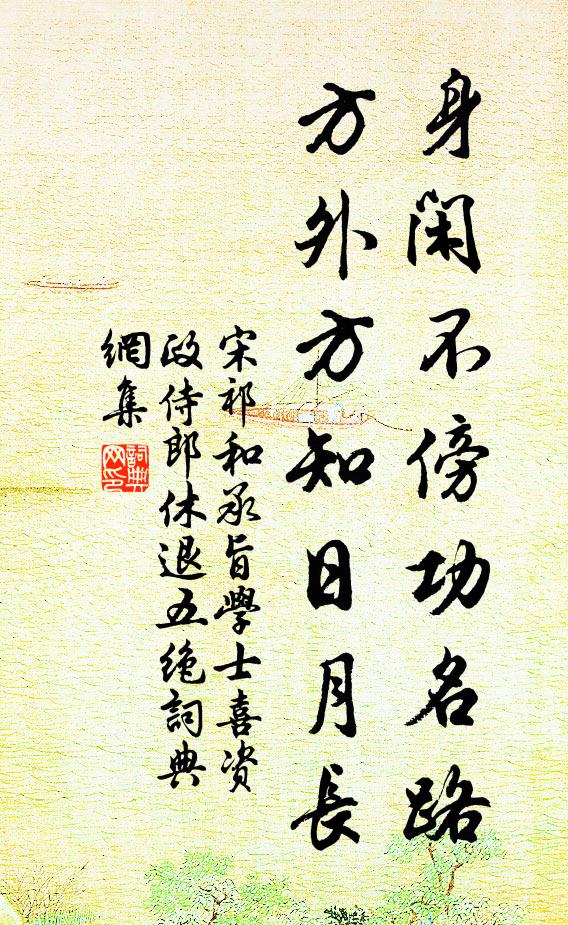 身閑不傍功名路
方外方知日月長
宋祁和承旨學士喜資
政侍郎休退五絶詞典
網集
詞典
网印